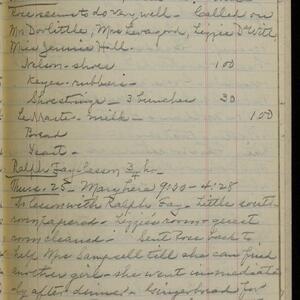 Rose seems to do very well - Called on
Mrs Dorlittle, Mrs Livagood, Lizzie De Witt
Miss Jennie Hall.
Nelson - shoes 1 00
Keyes - rubbers -
Shoestrings - 3 bunches 30
Le Maste - milk - 1 00
Bread
Yeast -
Ralph Fay - lesson 3/4 ho.
Thurs. 25 - Mary here 9:30 - 4:28
No lesson with Ralph Fay - Little south
room papered - Lizzie's room - guest
room cleaned - Sent Rose back to
help Mrs Sampsell till she can find
another girl - she went immediate
ly after dinner - Gingerbread for